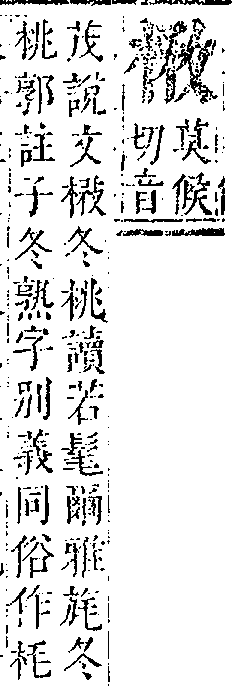 㮘
莫候
切音
茂說文㮘冬桃讀若髦爾雅旄冬
桃郭註子冬熟字別義同俗作枆